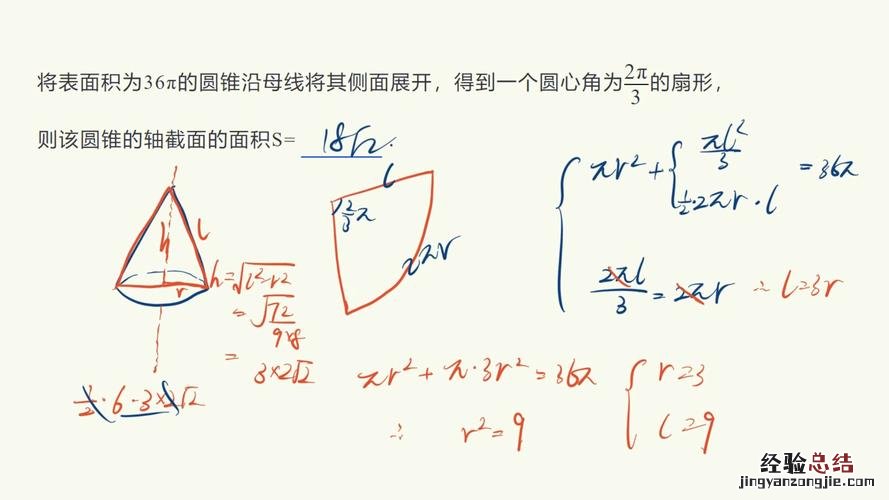 将表面积为36π的圆锥沿母线将其侧面展开，得到一个圆心角为2π/3的扇形，
则该圆锥的轴截面的面积S= 18√2.
l
2/3 π
2πr
h
l
r
h=√(l²-r²)
=√72
=
3×2√2
1/2·6·3×2√2
πr²+{πl²/3
1/2·2πr·l
=36π
2πl/3=2πr ∴l=3r
πr²+π·3r²=36π
∴ r²=9
{r=3
l=9
经验总结
jingyanzongjie.com